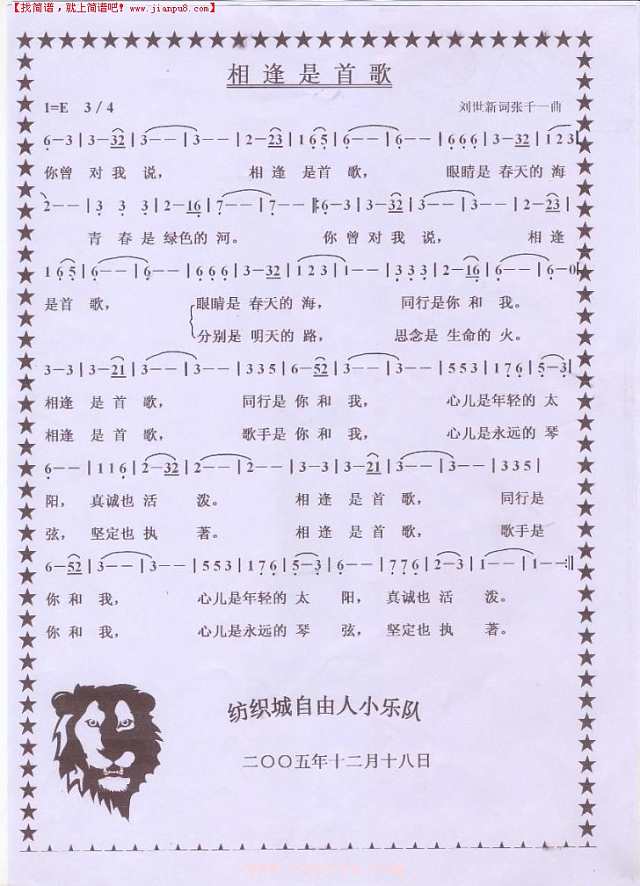 【找简谱，就上简谱吧! www.jianpu8.com】
相逢是首歌
1=E 3/4
刘世新词张千一曲
6-3|3-32|3--|3--|2-23|165|6--|6--|666|3-32|123|
你曾 对我 说， 相逢 是首 歌， 眼睛是 春天的 海
2--|3 3 3|2-16|7--|7--|:6-3|3-32|3--|3--|2-23|
青 春 是 绿色的 河。 你 曾 对 我 说， 相 逢
165|6--|6--|666|3-32|123|1--|333|2-16|6--|6-0|
是首 歌， 眼睛是 春天的 海， 同行是 你 和 我。
分别是 明天的 路， 思念是 生命的 火。
3-3|3-21|3--|3--|335|6-52|3--|3--|553|176|5-3|
相逢 是 首 歌， 同行是 你 和 我， 心儿是 年轻的 太
相逢 是 首 歌， 歌手是 你 和 我， 心儿是 永远的 琴
6--|116|2-32|2--|2--|3-3|3-21|3--|3--|335|
阳， 真诚也 活 泼。 相 逢 是 首 歌， 同行是
弦， 坚定也 执 著。 相 逢 是 首 歌， 歌手是
6-52|3--|3--|553|176|5-3|6--|776|2-3|1--|1--:||
你 和 我， 心儿是 年轻的 太 阳， 真诚也 活 泼。
你 和 我， 心儿是 永远的 琴 弦， 坚定也 执 著。
纺织城自由人小乐队
二〇〇五年十二月十八日